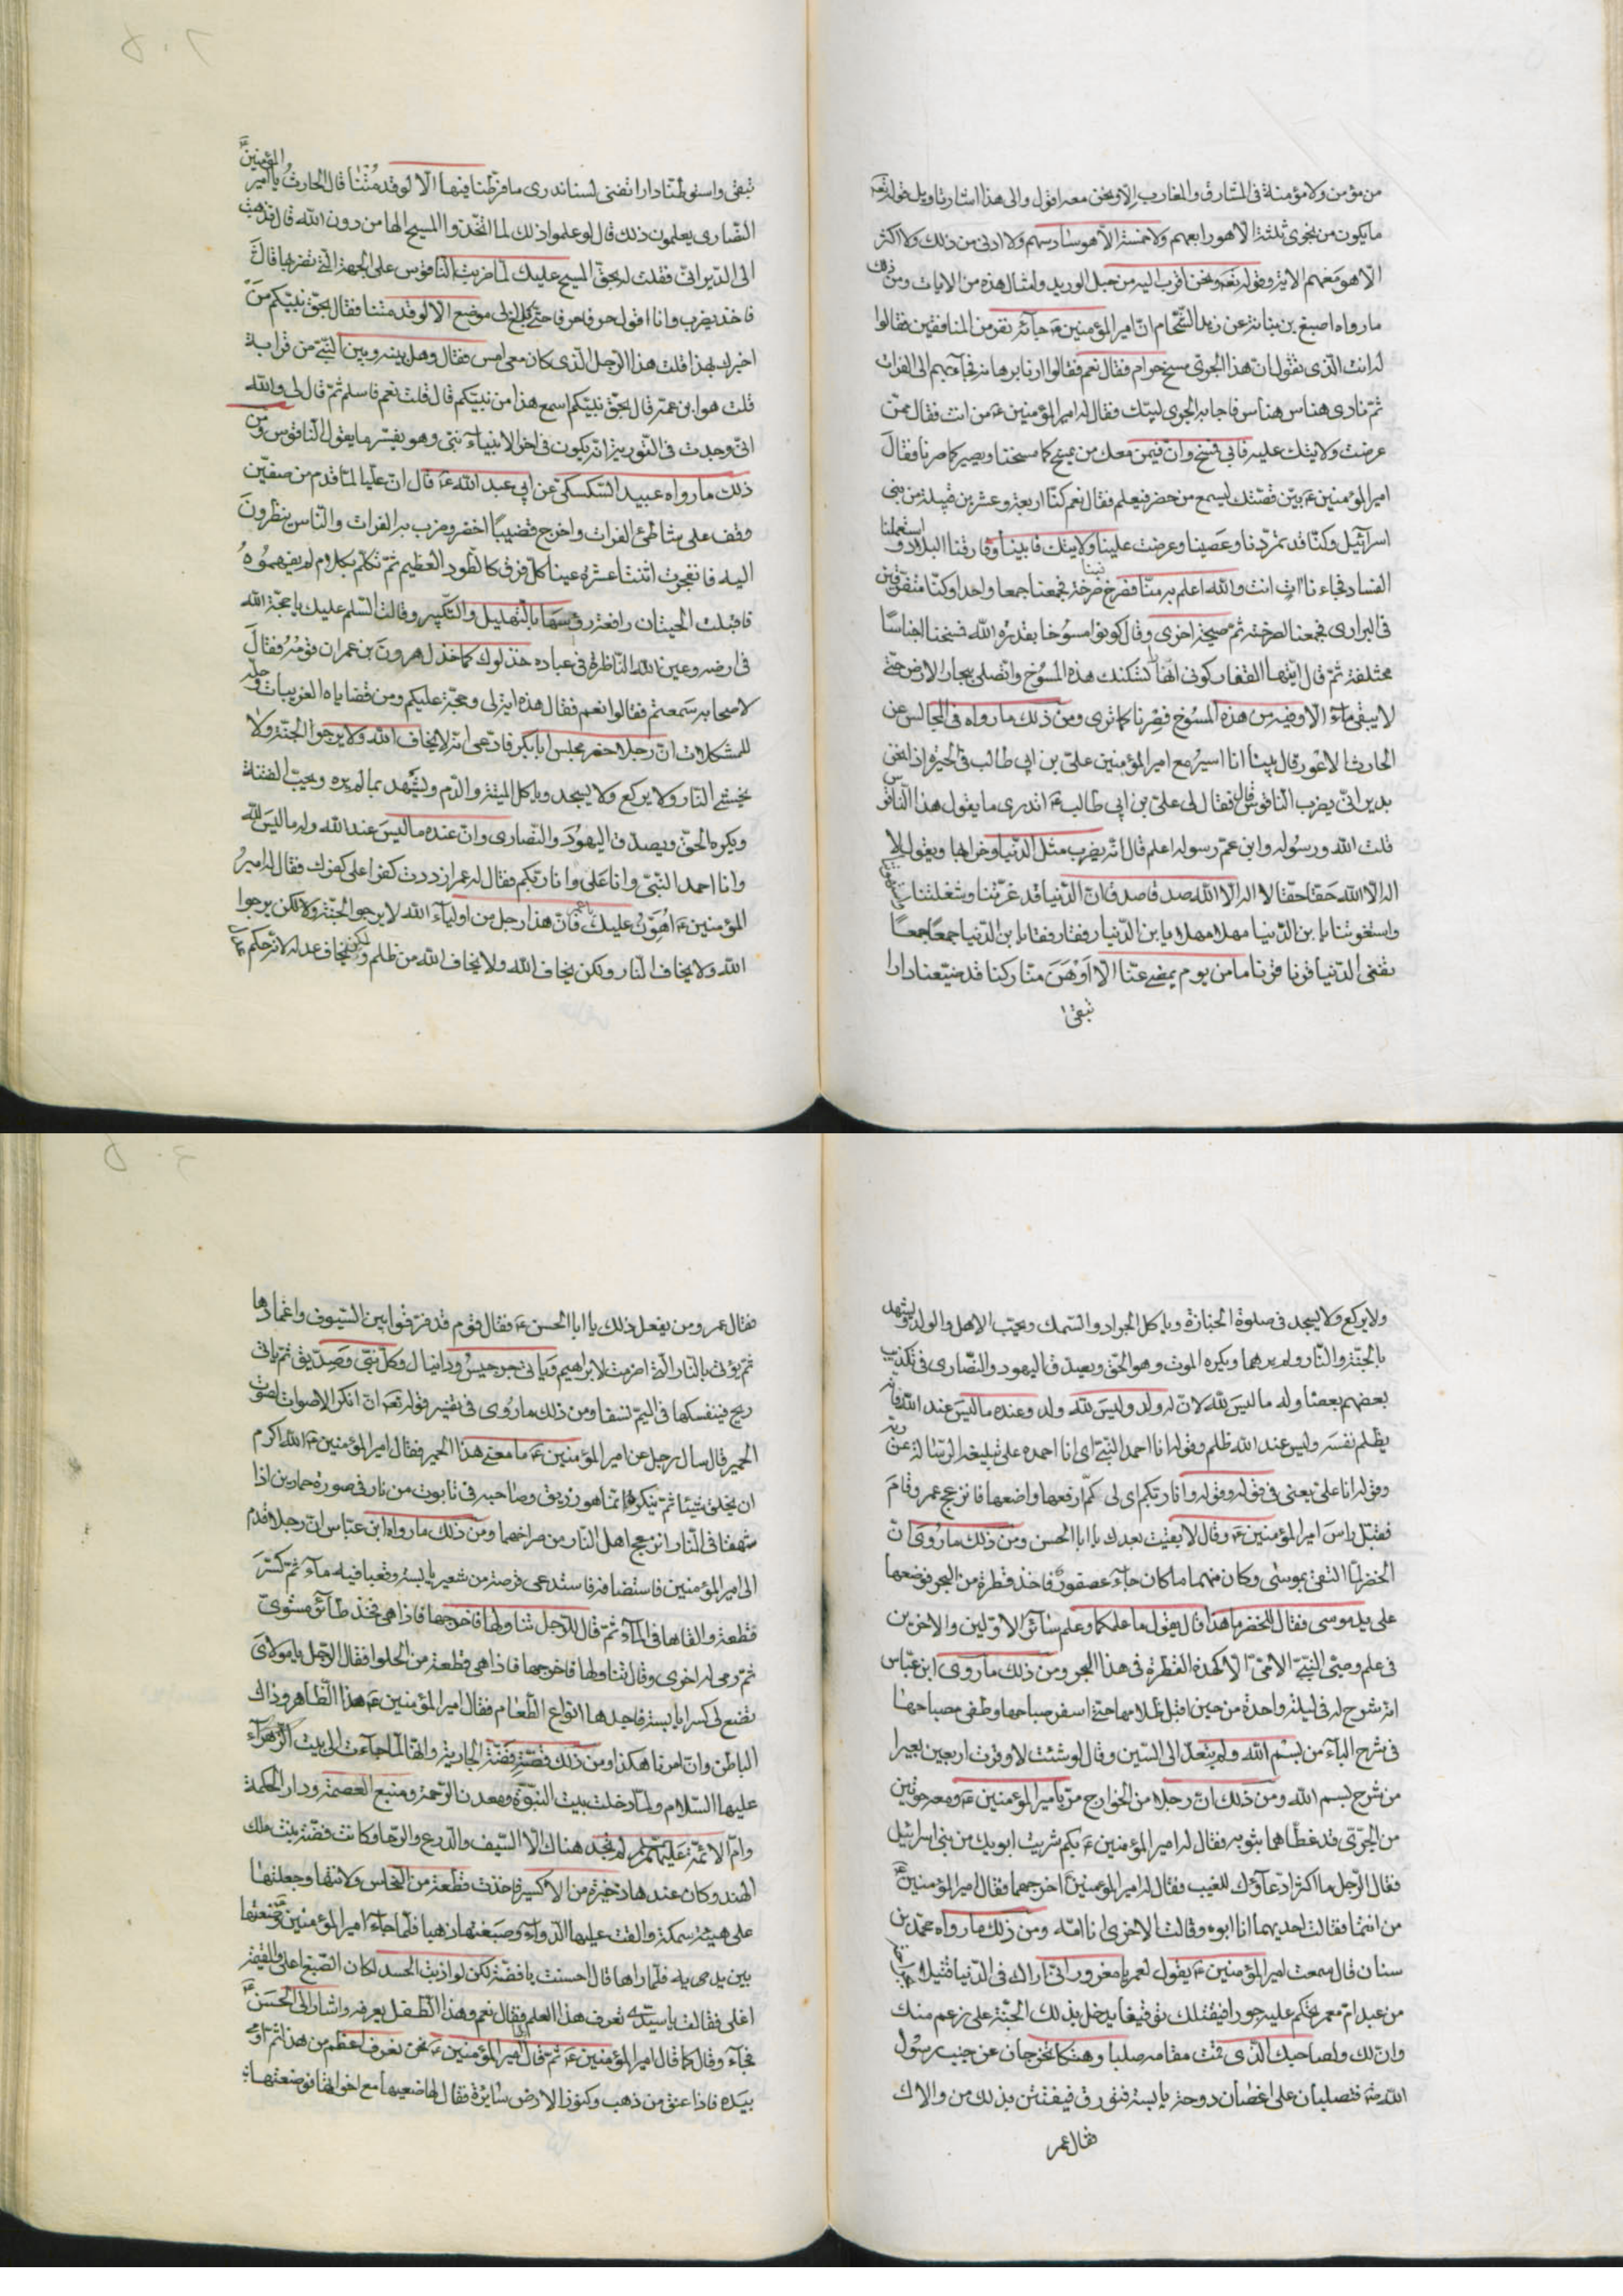 من مؤمن ولا مؤمنة فى المشارق والمغارب الا ونحن معه اقول والى هذا اشار تاويل قوله تعه
ما يكون من نجوى ثلثة الا هو رابعهم ولا خمسة الا هو سادسهم ولا ادنى من ذلك ولا اكثر
الا هو معهم الاية وقوله تعه ونحن اقرب اليه من حبل الوريد وامثال هذه من الايات ومن ذلك
ما رواه اصبغ بن نباتة عن زيد الشحام ان امير المؤمنين ع جآئه نفر من المنافقين فقالوا
له انت الذى تقول ان هذا الجرى مسخ حرام فقال نعم فقالوا ارنا برهانه فجآء بهم الى الفرات
ثم نادى هناس هناس فاجابه الجرى لبيك فقال له امير المؤمنين ع من انت فقال ممن
عرضت ولايتك عليه فابى فمسخ وان فيمن معك من يمسخ كما مسخنا ويصير كما صرنا فقال
امير المؤمنين ع بين قصتك ليسمع من حضر فيعلم فقال نعم كنا اربعة وعشرين قبيلة من بنى
اسرآئيل وكنا قد تمردنا وعصينا وعرضت علينا ولايتك فابينا وفارقنا البلاد واستعملنا
الفساد فجاءنا ات انت والله اعلم به منا فصرخ فينا صرخة فجمعنا جمعا واحدا وكنا متفرقين
فى البرارى فجمعنا لصرخته ثم صيحة اخرى وقال كونوا مسوخا بقدرة الله فمسخنا اجناسا
مختلفة ثم قال ايتها القفار كونى انهارا تسكنك هذه المسوخ واتصلى ببحار الارض حتى
لا يبقى مآء الا وفيه من هذه المسوخ فصرنا كما ترى ومن ذلك ما رواه فى المجالس عن
الحارث الاعور قال بينا انا اسير مع امير المؤمنين على بن ابى طالب فى الحيرة اذا نحن
بديرانى يضرب الناقوس قال فقال لى على بن ابى طالب ع اتدرى ما يقول هذا الناقوس
قلت الله ورسوله وابن عم رسوله اعلم قال انه يضرب مثل الدنيا وخرابها ويقول لا
اله الا الله حقا حقا لا اله الا الله صدقا صدقا ان الدنيا قد غرتنا وشغلتنا واستهوتنا
واستغوتنا يا بن الدنيا مهلا مهلا يا بن الدنيا رفقا رفقا يا بن الدنيا جمعا جمعا
تفنى الدنيا قرنا قرنا ما من يوم يمضى عنا الا اوهن منا ركنا قد ضيعنا دارا
تبقى
تبقى واستوطنا دارا تفنى لسنا ندرى ما فرطنا فيها الا لو قد متنا قال الحارث يا امير المؤمنين
النصارى يعلمون ذلك قال لو علموا ذلك لما اتخذوا المسيح الها من دون الله قال فذهبت
الى الديرانى فقلت له بحق المسيح عليك لما ضربت الناقوس على الجهة التى تضربها قال
فاخذ يضرب وانا اقول حرفا حرفا حتى بلغ الى موضع الا لو قد متنا فقال بحق نبيكم من
اخبرك بهذا قلت هذا الرجل الذى كان معى امس فقال وهل بينه وبين النبى من قرابة
قلت هو ابن عمه قال بحق نبيكم اسمع هذا من نبيكم قال قلت نعم فاسلم ثم قال لى والله
انى وجدت فى التورية انه يكون فى اخر الانبياء نبى وهو يفسر ما يقول الناقوس ومن
ذلك ما رواه عبيد السكسكى عن ابى عبد الله ع قال ان عليا لما قدم من صفين
وقف على شاطئ الفرات واخرج قضيبا اخضر وضرب به الفرات والناس ينظرون
اليه فانفجرت اثنتا عشرة عينا كل فرق كالطود العظيم ثم تكلم بكلام لم يفهموه
فاقبلت الحيتان رافعة رؤسها بالتهليل والتكبير وقالت السلم عليك يا حجة الله
فى ارضه وعين الله الناظرة فى عباده خذلوك كما خذل هرون بن عمران قومه فقال
لاصحابه سمعتم فقالوا نعم فقال هذه اية لى وحجة عليكم ومن قضاياه الغريبات وحله
للمشكلات ان رجلا حضر مجلس ابابكر فادعى انه لا يخاف الله ولا يرجو الجنة ولا
يخشى النار ولا يركع ولا يسجد وياكل الميتة والدم ويشهد بما لم يره ويحب الفتنة
ويكره الحق ويصدق اليهود والنصارى وان عنده ما ليس عند الله وله ما ليس لله
وانا احمد النبى وانا على وانا ربكم فقال له عمر ازددت كفرا على كفرك فقال له امير
المؤمنين ع هون عليك يا عمر فان هذا رجل من اوليآء الله لا يرجو الجنة ولكن يرجوا
الله ولا يخاف النار ولكن يخاف الله ولا يخاف الله من ظلم ولكن يخاف عدله لانه حكم
ولا يركع ولا يسجد فى صلوة الجنازة وياكل الجراد والسمك ويحب الاهل والولد ويشهد
بالجنة والنار ولم يرهما ويكره الموت وهو الحق ويصدق اليهود والنصارى فى تكذيب
بعضهم بعضا وله ما ليس لله لان له ولد وليس لله ولد وعنده ما ليس عند الله فانه
يظلم نفسه وليس عند الله ظلم وقوله انا احمد النبى اى انا احمده على تبليغه الرسالة عن ربه
وقوله انا على يعنى فى قوله وقوله وانا ربكم اى لى كم ارفعها واضعها فانزعج عمر وقام
فقبل راس امير المؤمنين ع وقال لا بقيت بعدك يا ابا الحسن ومن ذلك ما روى ان
الخضر لما التقى بموسى وكان منهما ما كان جآء عصفور فاخذ قطرة من البحر فوضعها
على يد موسى فقال للخضر ما هذا قال يقول ما علمكما وعلم سآئر الاولين والاخرين
فى علم وصى النبى الامى الا كهذه القطرة فى هذا البحر ومن ذلك ما روى ابن عباس
انه شرح له فى ليلة واحدة من حين اقبل ظلامها حتى اسفر صباحها وطفى مصباحها
فى شرح البآء من بسم الله ولم يتعد الى السين وقال لو شئت لاوقرت اربعين بعيرا
من شرح بسم الله ومن ذلك ان رجلا من الخوارج مر بامير المؤمنين ع ومعه حوتين
من الجرى قد غطاهما بثوبه فقال له امير المؤمنين ع بكم شريت ابويك من بنى اسرائيل
فقال الرجل ما اكثر ادعآؤك للغيب فقال له امير المؤمنين ع اخرجهما فقال امير المؤمنين ع
من انتما فقالت احديهما انا ابوه وقالت الاخرى انا امه ومن ذلك ما رواه محمد بن
سنان قال سمعت امير المؤمنين ع يقول لعمر يا مغرور انى اراك فى الدنيا قتيلا
من عبد ام معمر تحكم عليه جورا فيقتلك توفيقا يدخل بذلك الجنة على زعم منك
وان لك ولصاحبك الذى قمت مقامه صلبا وهتكا تخرجان عن جنب رسول
الله ص فتصلبان على اغصان دوحة يابسة فتورق فيفتتن بذلك من والاك
فقال عمر
فقال عمر ومن يفعل ذلك يا ابا الحسن ع فقال قوم قد فرقوا بين السيوف واغمادها
ثم يؤتى بالنار التى اضرمت لابراهيم وياتى جرجيس ودانيال وكل نبى وصديق ثم ياتى
ريح فينسفكما فى اليم نسفا ومن ذلك ما روى فى تفسير قوله تعه ان انكر الاصوات لصوت
الحمير قال سال رجل عن امير المؤمنين ع ما معنى هذا الحمير فقال امير المؤمنين ع الله اكرم
ان يخلق شيئا ثم ينكره انما هو زريق وصاحبه فى تابوت من نار فى صورة حمارين اذا
شهقا فى النار انزعج اهل النار من صراخهما ومن ذلك ما رواه ابن عباس ان رجلا قدم
الى امير المؤمنين فاستضافه فاستدعى قرصة من شعير يابسة وقعبا فيه مآء ثم كسر
قطعة والقاها فى المآء ثم قال للرجل تناولها فاخرجها فاذا هى فخذ طآئر مشوى
ثم رمى له اخرى وقال تناولها فاخرجها فاذا هى قطعة من الحلوا فقال الرجل يا مولاى
تضع لى كسرا يابسة فاجدها انواع الطعام فقال امير المؤمنين ع هذا الظاهر وذاك
الباطن وان امرنا هكذا ومن ذلك قصة فضة الجارية وانها لما جآءت الى بيت الزهرآء
عليها السلام ولما دخلت بيت النبوة ومعدن الرحمة ومنبع العصمة ودار الحكمة
وام الائمة عليهم لم تجد هناك الا السيف والدرع والرحا وكانت فضة بنت ملك
الهند وكان عندها ذخيرة من الاكسير فاخذت قطعة من النحاس ولانتها وجعلتها
على هيئة سمكة والقت عليها الدوآء وصبغتها ذهبا فلما جآء امير المؤمنين ع وضعتها
بين يديه فلما راها قال احسنت يا فضة لكن لو اذبت الجسد لكان الصبغ اعلى والقيمة
اغلى فقالت يا سيدى تعرف هذا العلم فقال نعم وهذا الطفل يعرفه واشار الى الحسن ع
فجآء وقال كما قال امير المؤمنين ع ثم قال امير المؤمنين ع نحن نعرف اعظم من هذا ثم اومى
بيده فاذا عنق من ذهب وكنوز الارض سايرة فقال لها ضعيها مع اخواتها فوضعتها